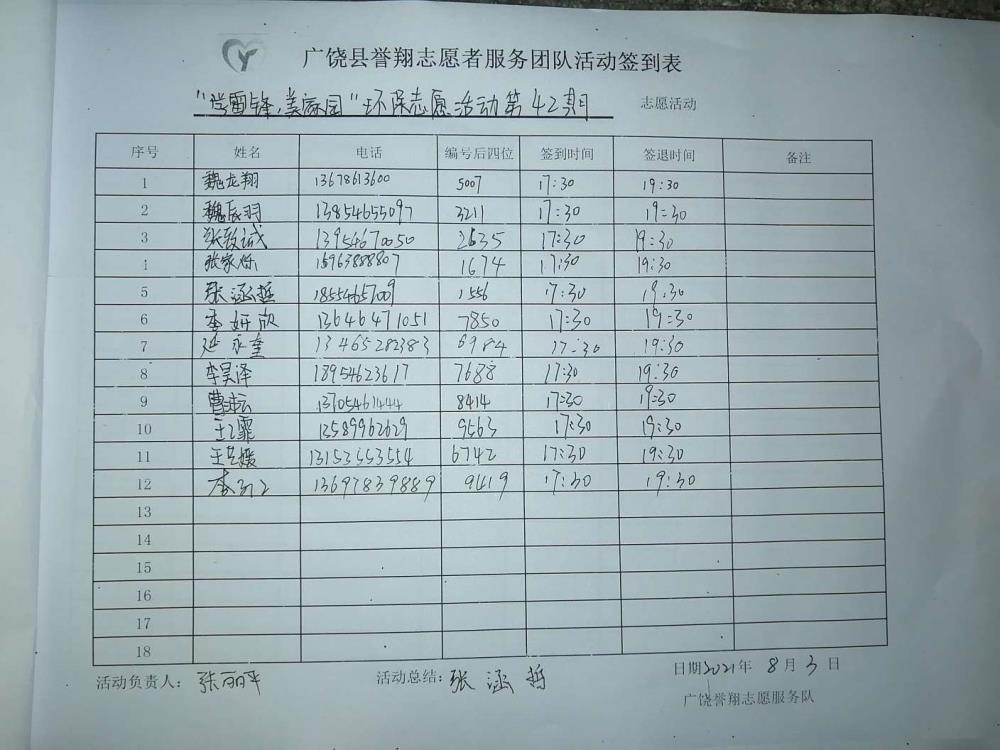 广饶县誉翔志愿者服务团队活动签到表
“学雷锋,美家园”环保志愿活动第42期 志愿活动
序号 姓名 电话 编号后四位 签到时间 签退时间 备注
1 魏龙翔 13678613600 5007 17:30 19:30
2 魏辰羽 13854655097 3211 17:30 19:30
3 张致诚 13954670050 2635 17:30 19:30
4 张家烁 15963888807 1674 17:30 19:30
5 张涵哲 18554657009 1556 17:30 19:30
6 李妍欣 13646471051 7850 17:30 19:30
7 延永奎 13465282383 6984 17:30 19:30
8 李昊泽 18954623617 7688 17:30 19:30
9 曹 13705461444 8414 17:30 19:30
10 王 霏 13589962629 9563 17:30 19:30
11 王艺媛 13153553554 6742 17:30 19:30
12 李 13697839889 9419 17:30 19:30
13
14
15
16
17
18
活动负责人: 张丽平 活动总结: 张涵哲 日期2021年 8月3日
广饶誉翔志愿服务队